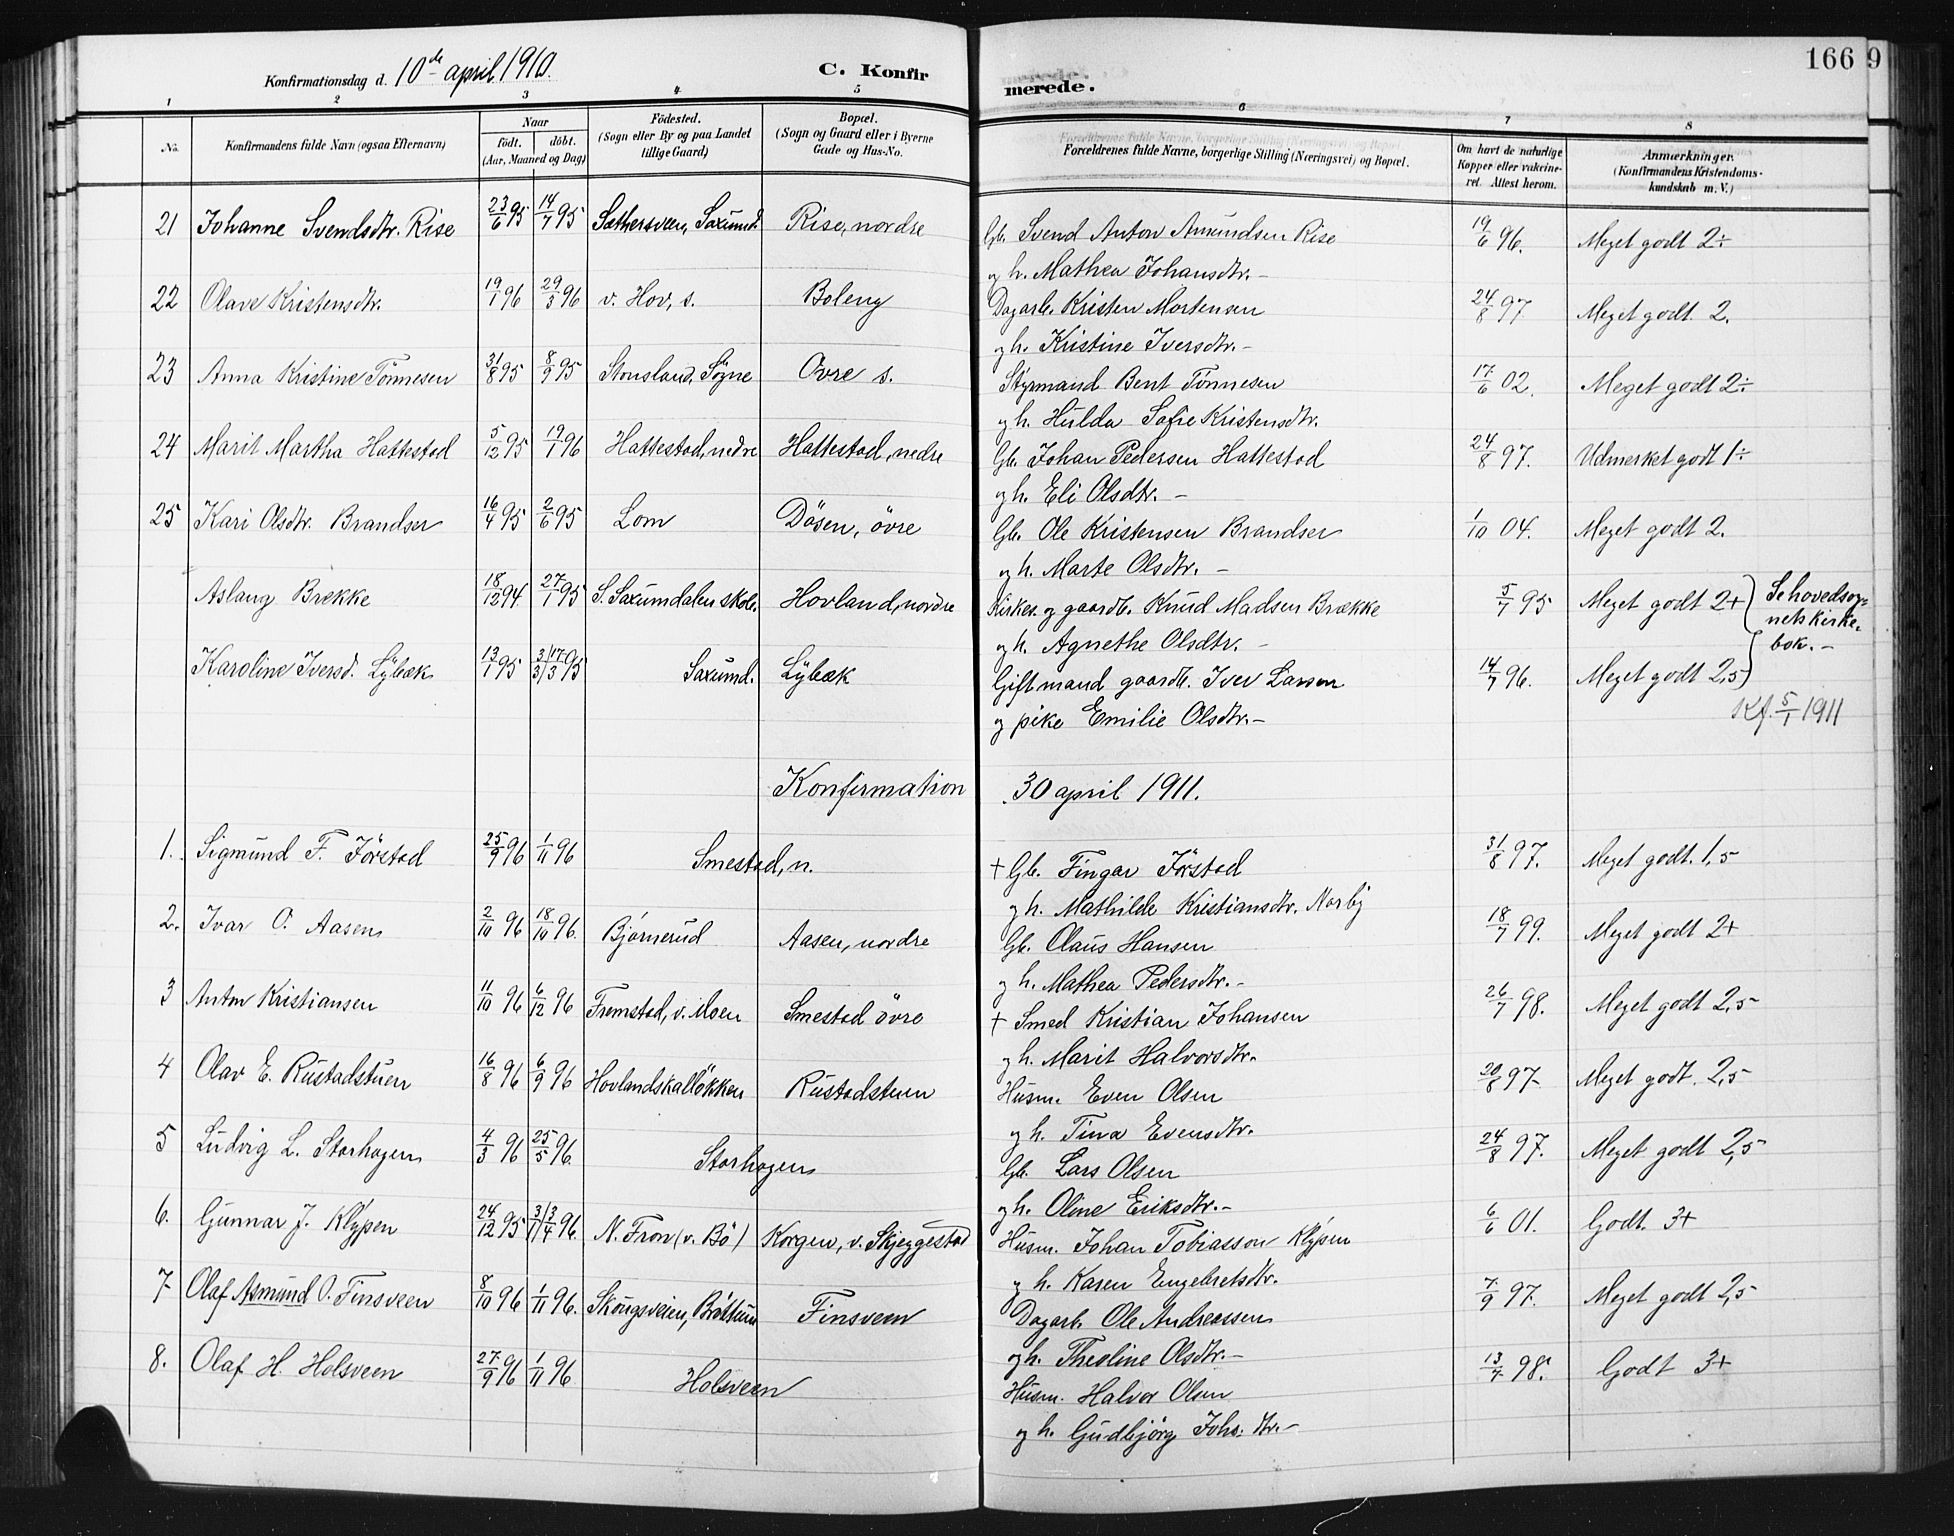 166 9
Konfirmationsdag d. 10de april 1910. C. Konfirmerede.
1 2 3 4 5 6 7 8
No. Konfirmandens fulde Navn (ogsaa Efternavn) Naar født. døbt. (Aar, Maaned og Dag) Fødested. (Sogn eller By og paa Landet tillige Gaard) Bopæl. (Sogn og Gaard eller i Byerne Gade og Hus-No. Forældrenes fulde Navne, borgerlige Stilling (Næringsvei) og Bopæl. Om havt de naturlige Kopper eller vaccineret. Attest herom. Anmærkninger. (Konfirmandens Kristendomskundskab m. V.)
21 Johanne Svendsdtr. Rise 23/6 95 14/7 95 Sæthersveen, Saxumd. Rise, nordre Gb. Svend Anton Amundsen Rise 19/6 96. Meget godt 2÷
og h. Mathea Johansdtr. –
22 Olave Kristensdtr. 19/1 96 29/3 96 v. Hov, s. Boleng Dagarb. Kristen Mortensen 24/8 97 Meget godt 2.
og h. Kristine Iversdtr. –
23 Anna Kristine Tönnesen 31/8 95 8/9 95 Stensland, Søgne Ovre s. Styrmand Bent Tönnesen 17/6 02. Meget godt 2÷
og h. Hulda Sofie Kristensdtr.
24 Marit Martha Hattestad 5/12 95 19/1 96 Hattestad, nedre Hattestad, nedre Gb. Johan Pedersen Hattestad 24/8 97. Udmerket godt 1÷
og h. Eli Olsdtr. –
25 Kari Olsdtr. Brandser 16/4 95 2/6 95 Lom Dösen, övre Gb. Ole Kristensen Brandser 1/10 04. Meget godt 2.
og h. Marte Olsdtr. –
Aslaug Brekke 18/12 94 27/1 95 S. Saxumdalen skole Hovland, nordre Kirkes. og gaardb. Knud Madsen Brække 5/7 95 Meget godt 2+ Se hovedsog-
og h. Agnethe Olsdtr. – nets kirke-
bok. –
Karoline Iversd. Lybæk 13/1 95 3/3 17/3 95 Saxumd. Lybæk Gift mand gaardb. Iver Larsen 14/7 96. Meget godt 2,5
og pike Emilie Olsdtr. – Kf. 5/1 1911
Konfirmation 30 april 1911.
1. Sigmund F. Jörstad 25/9 96 1/11 96 Smestad, n. + Gb. Fingar Jörstad 31/8 97. Meget godt. 1,5
og h. Mathilde Kristiansdtr. Narby
2. Ivar O. Aasen 2/10 96 18/10 96. Bjørnerud Aasen, nordre Gb. Olaus Hansen 18/7 99. Meget godt 2+
og h. Mathea Pedersdtr. –
3 Anton Kristiansen 11/10 96 6/12 96 Fremstad, v. Moen Smestad övre + Smed Kristian Johansen 26/7 98. Meget godt 2,5
og h. Marit Halvorsdtr.
4 Olav E. Rustadstuen 16/8 96 6/9 96 Hovlandskallökken Rustadstuen Husm. Even Olsen 20/8 97. Meget godt. 2,5
og h. Tina Evensdtr.
5 Ludvig L. Storhagen 4/3 96 25/5 96. Storhagen Gb. Lars Olsen 24/8 97. Meget godt 2,5
og h. Oline Eriksdtr. –
6. Gunnar J. Klypen 24/12 95 3/1 3/4 96. N. Fron (v. Bö) Korgen, v. Skjeggestad Husm. Johan Tobiasson Klypen 6/6 01. Godt. 3+
og h. Karen Engebretsdtr.
7 Olaf Asmund O. Finsveen 8/10 96 1/11 96. Skougsveien, Brøttum Finsveen Dagarb. Ole Andreassen 7/9 97. Meget godt 2,5
og h. Theoline Olsdtr. –
8. Olaf H. Holsveen 27/9 96 1/11 96 Holsveen Husm. Halvor Olsen 13/7 98. Godt 3+
og h. Gudbjörg Johs. dtr. –